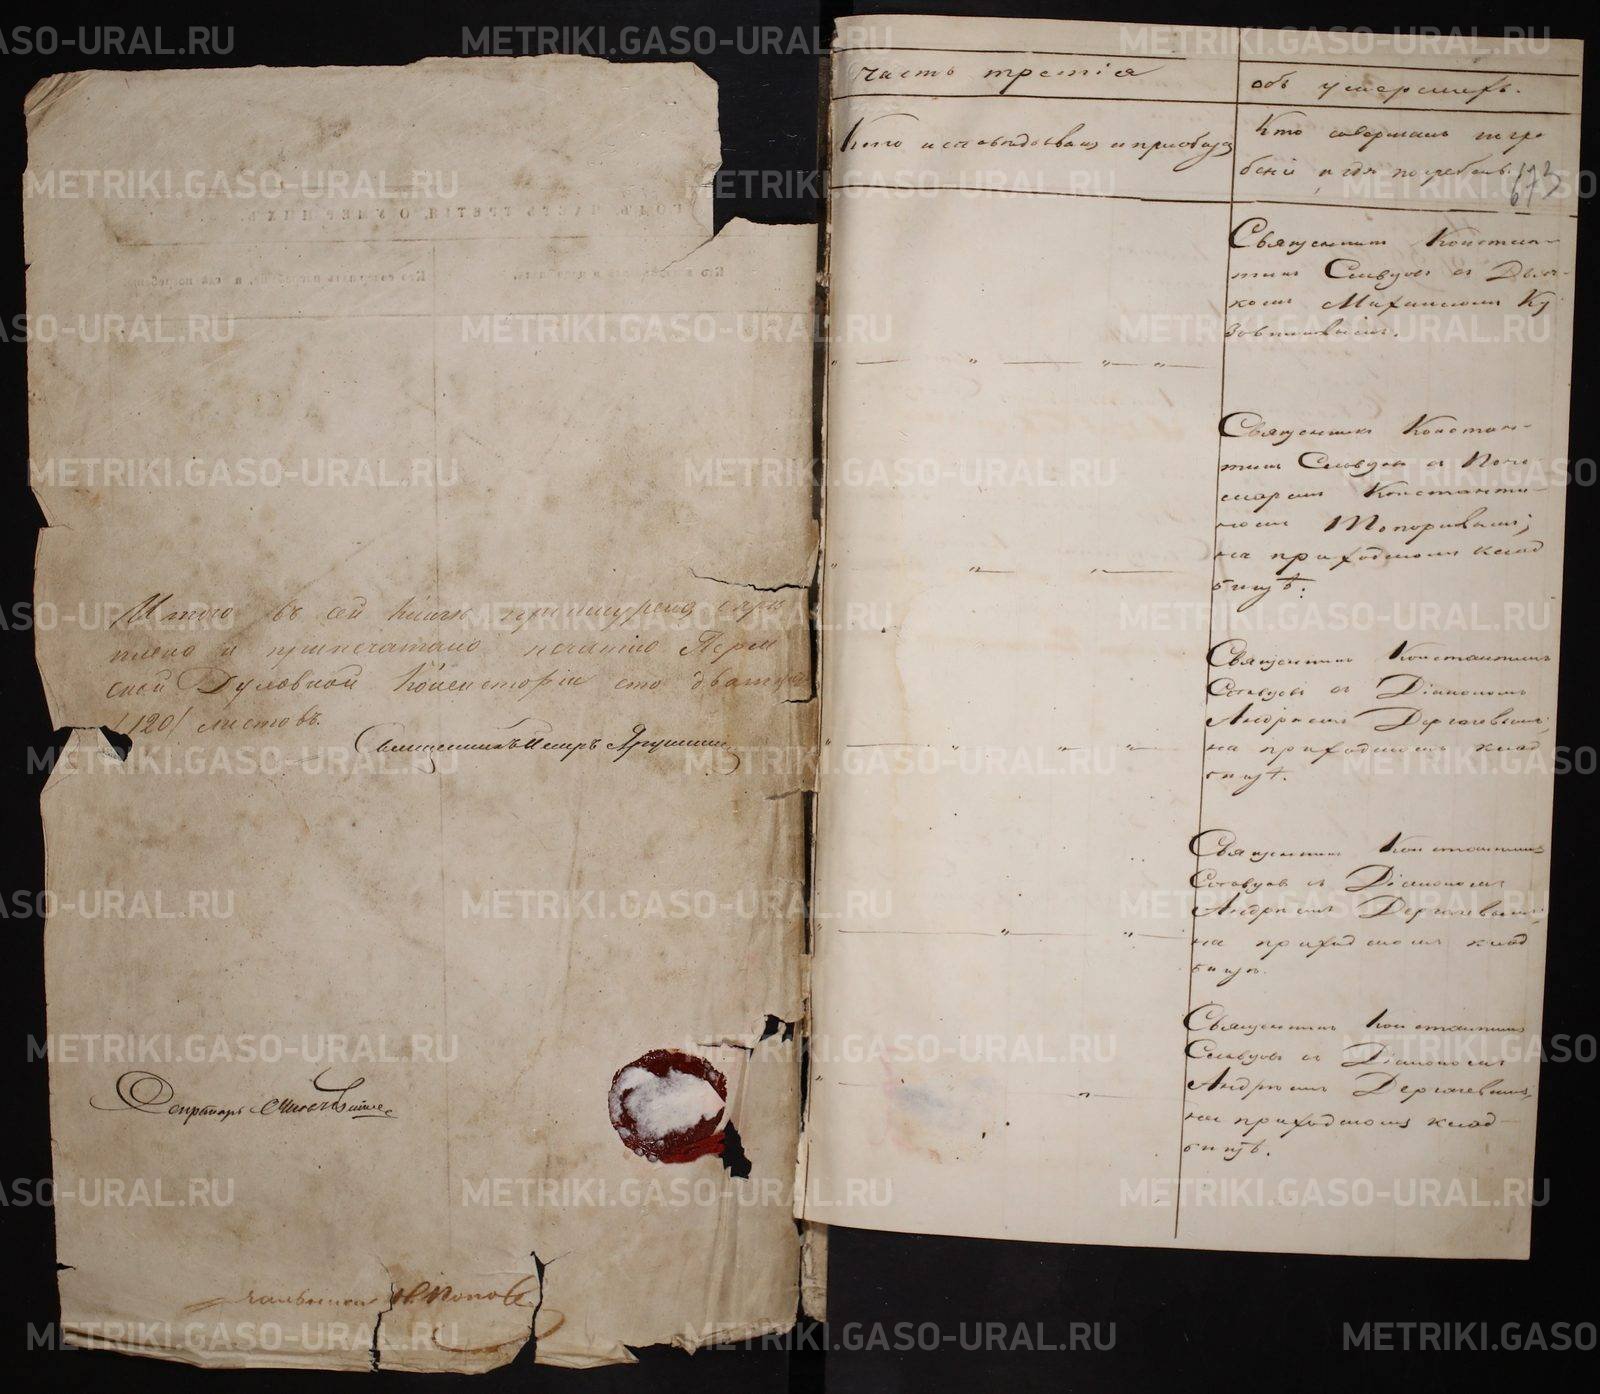 Итого въ сей книгѣ прошнурено скрѣ
плено и припечатано печатью Перм
ской Духовной Консисторіи сто двадцать
/120/ листовъ.
Священникъ Петръ
Секретарь
Н. Поповъ
часть третія
объ умершихъ.
Кто исповѣдывалъ и приобщалъ
Кто совершалъ погре
беніе и гдѣ погребены.
673
Священникъ Констан-
тинъ Словцовъ съ Дьяч-
комъ
Священникъ Констан-
тинъ Словцовъ съ Поно-
маремъ Константи-
номъ Топорковымъ;
на приходскомъ клад
бищѣ.
Священникъ Константинъ
Словцовъ съ Діакономъ
Андреемъ Дергачевымъ;
на приходскомъ клад
бищѣ.
Священникъ Константинъ
Словцовъ съ Діакономъ
Андреемъ Дергачевымъ;
на приходскомъ клад
бищѣ.
Священникъ Константинъ
Словцовъ съ Діакономъ
Андреемъ Дергачевымъ,
на приходскомъ клад-
бищѣ.
METRIKI.GASO-URAL.RU